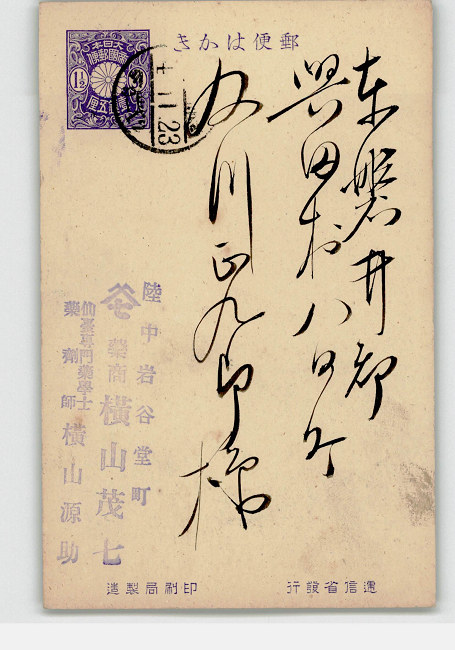 郵便はかき
大日本
帝國郵便
1½
壹錢五厘
11 23
東磐井郡
興田村八日町
及川正九郎様
陸中岩谷堂町
七
藥商 橫山茂七
仙臺專門藥學士
藥劑師 橫山源助
遞信省發行
印刷局製造